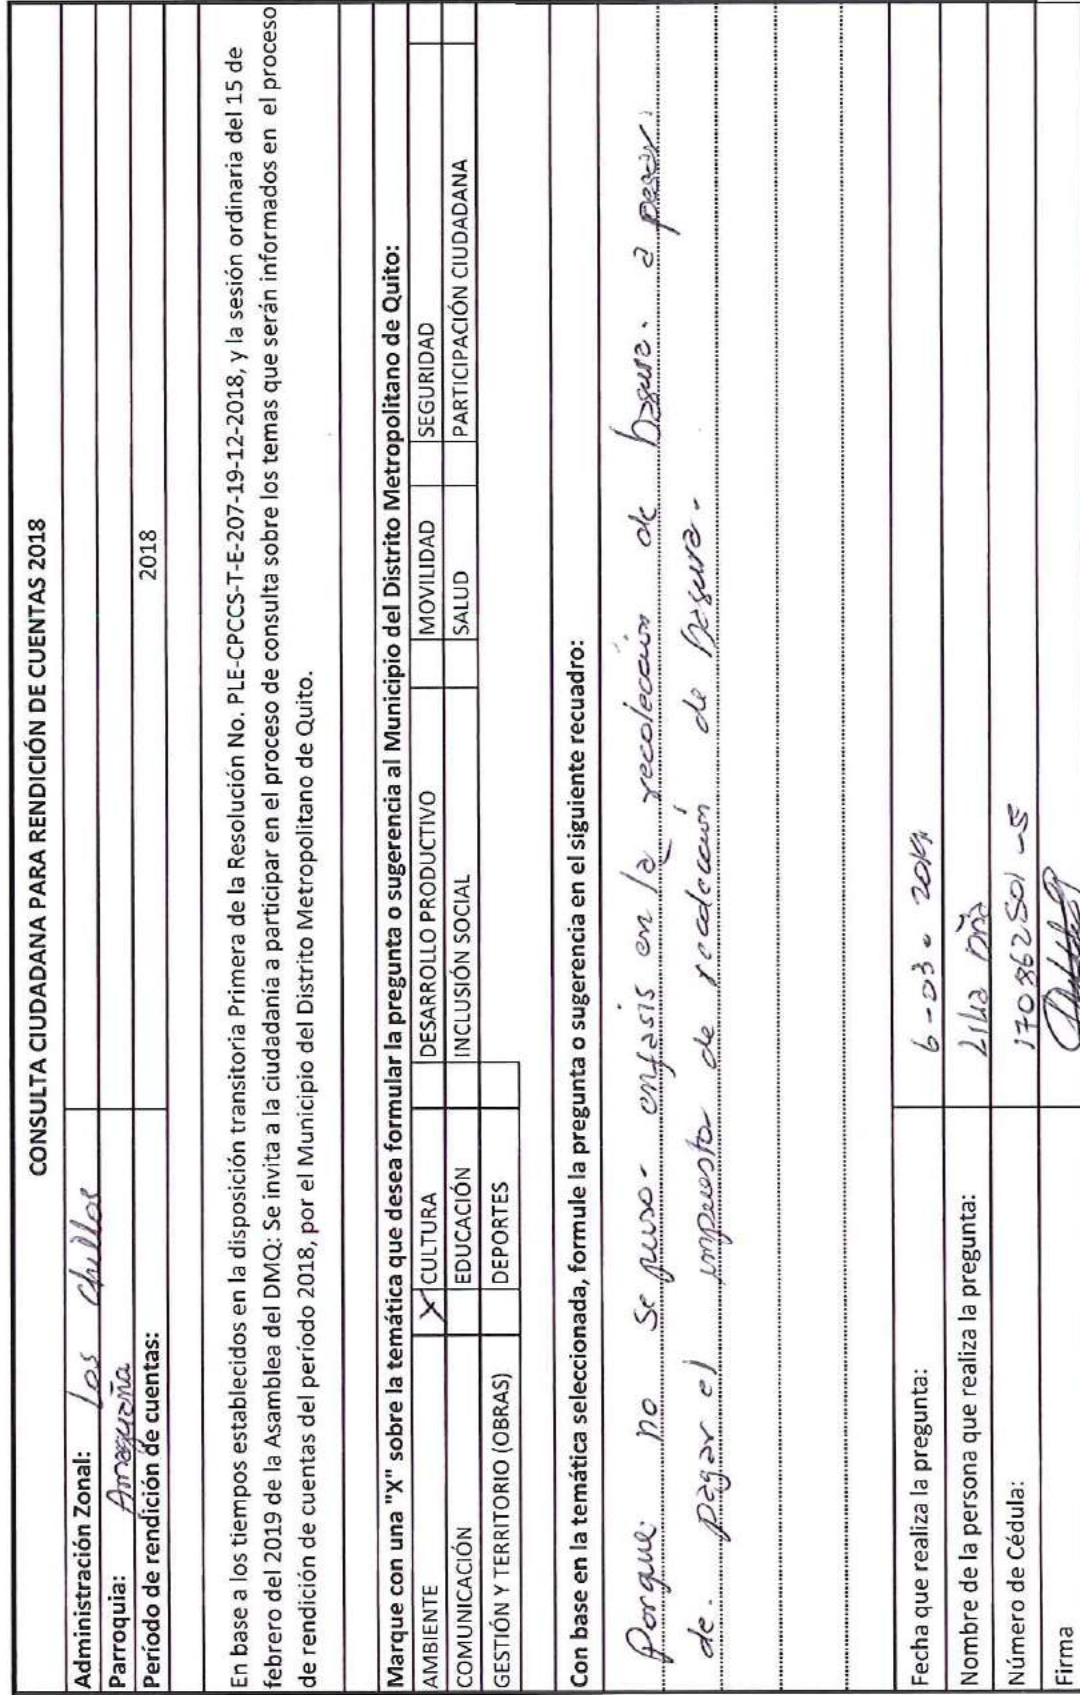 CONSULTA CIUDADANA PARA RENDICIÓN DE CUENTAS 2018
Administración Zonal: Los Chillos
Parroquia: Amaguaña
Período de rendición de cuentas: 2018
En base a los tiempos establecidos en la disposición transitoria Primera de la Resolución No. PLE-CPCCS-T-E-207-19-12-2018, y la sesión ordinaria del 15 de
febrero del 2019 de la Asamblea del DMQ: Se invita a la ciudadanía a participar en el proceso de consulta sobre los temas que serán informados en el proceso
de rendición de cuentas del período 2018, por el Municipio del Distrito Metropolitano de Quito.
Marque con una "X" sobre la temática que desea formular la pregunta o sugerencia al Municipio del Distrito Metropolitano de Quito:
AMBIENTE X CULTURA DESARROLLO PRODUCTIVO MOVILIDAD SEGURIDAD
COMUNICACIÓN EDUCACIÓN INCLUSIÓN SOCIAL SALUD PARTICIPACIÓN CIUDADANA
GESTIÓN Y TERRITORIO (OBRAS) DEPORTES
Con base en la temática seleccionada, formule la pregunta o sugerencia en el siguiente recuadro:
Porque no se puso enfasis en la recolección de basura. a pesar
de. pagar el impuesto de recolección de basura.
Fecha que realiza la pregunta: 6-03-2019
Nombre de la persona que realiza la pregunta: Lilia Oña
Número de Cédula: 170862501-5
Firma